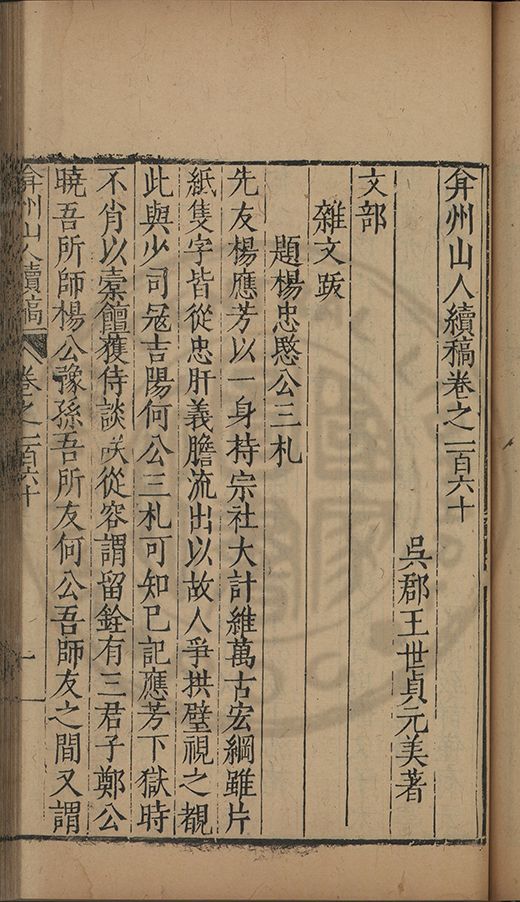 弇州山人續稿卷之一百六十
吳郡王世貞元美著
文部
雜文跋
題楊忠愍公三札
先友楊應芳以一身持宗社大計維萬古宏綱雖片
紙隻字皆從忠肝義膽流出以故人爭拱璧視之覩
此與少司冦吉陽何公三札可知已記應芳下獄時
不肖以橐饘獲侍談咲從容謂留銓有三君子鄭公
曉吾所師楊公豫孫吾所友何公吾師友之間又謂
弇州山人續稿 卷之一百六十 一